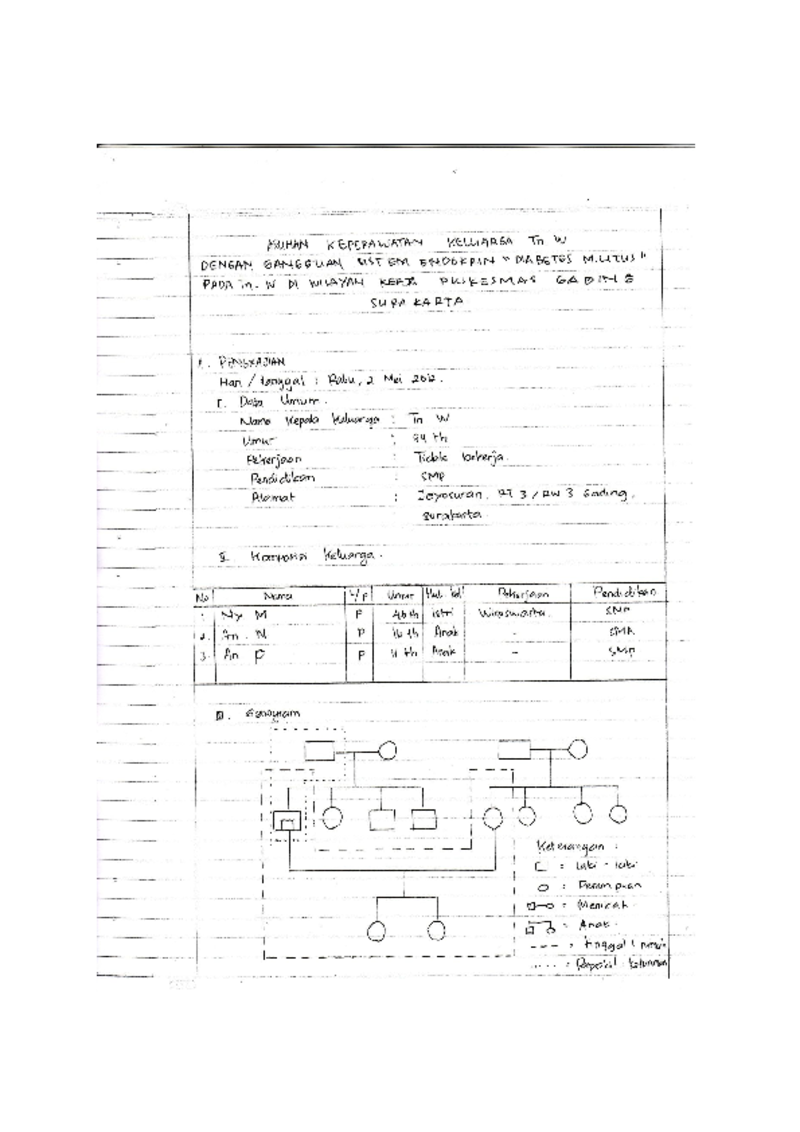 ASUHAN KEPERAWATAN KELUARGA Tn W
DENGAN GANGGUAN SISTEM ENDOKRIN "DIABETES MILITUS"
PADA Tn. W DI WILAYAH KERJA PUSKESMAS GADING
SURAKARTA
I. PENGKAJIAN
Hari / tanggal : Rabu, 2 Mei 2012.
I. Data Umum.
Nama Kepala Keluarga : Tn W
Umur : th
Pekerjaan : Tidak bekerja.
Pendidikan : SMP
Alamat : Joyosuran, RT 3 / RW 3 Gading,
Surakarta
II. Komposisi Keluarga.
No Nama L/P Umur Hub. kel Pekerjaan Pendidikan
1. Ny M P th istri Wiraswasta SMP
2. An. N P 16 th Anak - SMA
3. An P P 11 th Anak - SMP
III. Genogram
Keterangan :
= Laki - laki
= Perempuan
= Menikah
= Anak
--- = tinggal 1 rumah
..... = keturunan